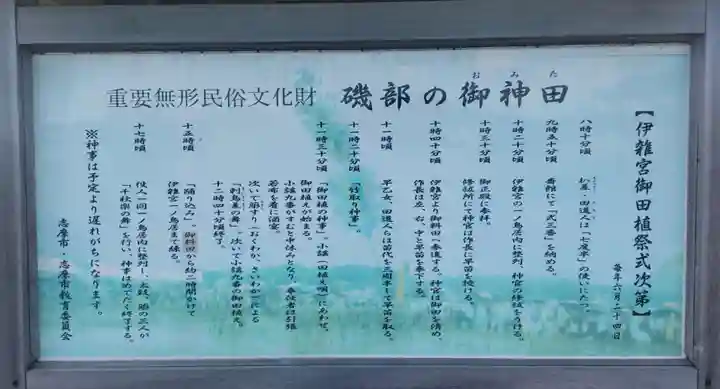 重要無形民俗文化財 磯部の御神田
おみた
【伊雜宮御田植祭式次第】
毎年六月二十四日
八時十分頃
杁差・田道人は「七度半」の使いにたつ。
九時五十分頃
番館にて「式三番」を納める。
十時二十分頃
伊雜宮の一ノ鳥居内に整列し神宮の修祓をうける。
十時三十分頃
御正殿に参拝。
修祓所にて神官は作長に早苗を授ける。
十時四十分頃
伊雜宮より御料田へ参進する。神官は御田を清め、
作長は左、右、中と早苗を奉下する。
十一時頃
早乙女、田道人らは苗代を三周半して早苗を取る。
十一時二十分頃
「竹取り神事」。
十一時三十分頃
「御田植の神事」。小謡(田植え唄)にあわせ、
御田植えが始まる。
小謡九番がすむと中休みとなり、奉仕者は引張
若布を肴に酒宴。
次いで簓すり(おくわか、さいわか)による
「刺鳥差の舞」。次いで小謡九番の御田植え。
十二時四十分頃終了。
十五時頃
「踊り込み」。御料田から約二時間かけて
伊雜宮一ノ鳥居まで練る。
十七時頃
役人一同一ノ鳥居内に整列し、太鼓、簓の三人が
「千秋楽の舞」を行い、神事はめでたく終了する。
※神事は予定より遅れがちになります。
志摩市・志摩市教育委員会